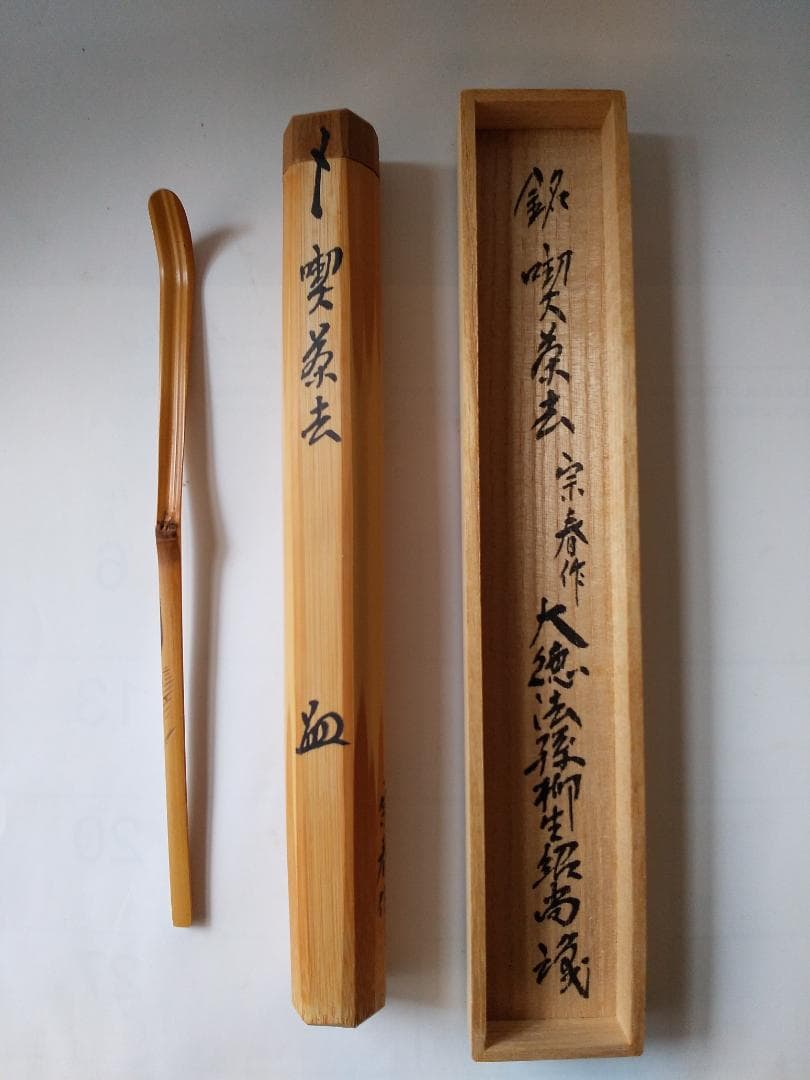 〆
喫茶去
宗春作
銘 喫茶去 宗春作
大徳法孫柳生紹尚識